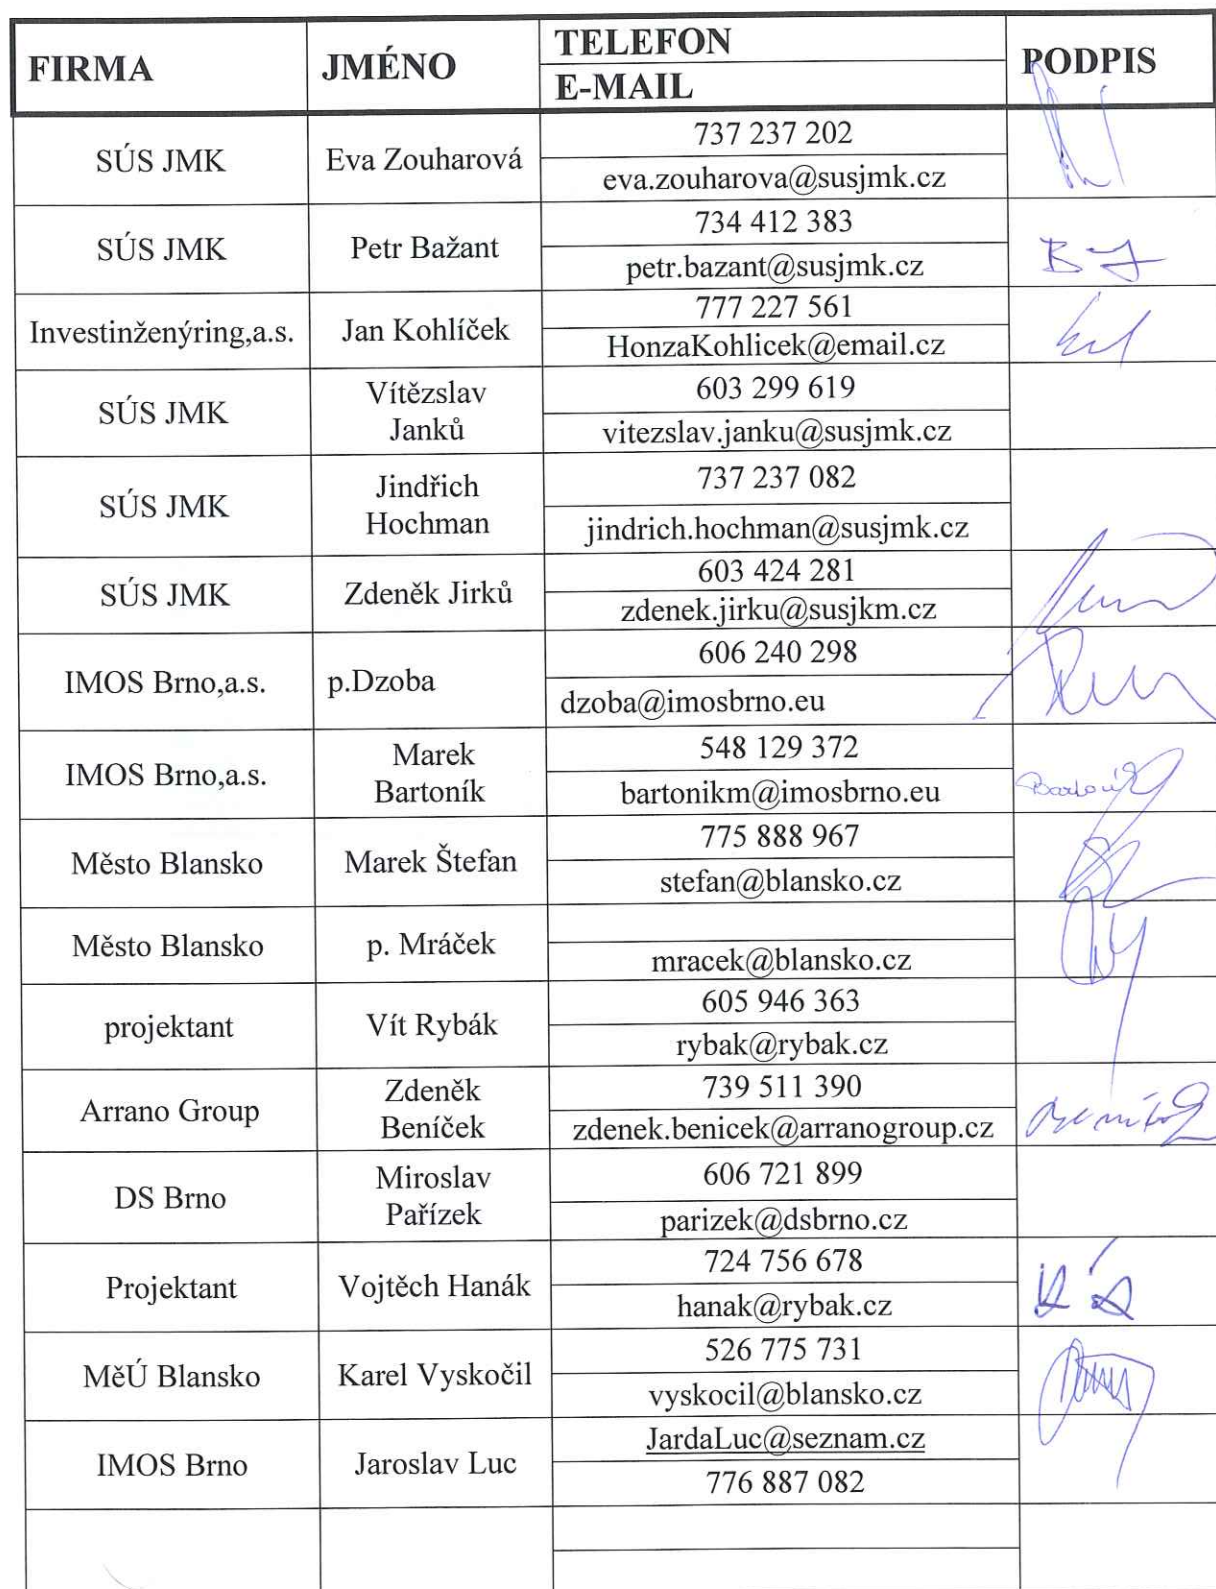 FIRMA JMÉNO TELEFON PODPIS
E-MAIL
SÚS JMK Eva Zouharová 737 237 202
eva.zouharova@susjmk.cz
SÚS JMK Petr Bažant 734 412 383
petr.bazant@susjmk.cz
Investinženýring,a.s. Jan Kohlíček 777 227 561
HonzaKohlicek@email.cz
SÚS JMK Vítězslav 603 299 619
Janků vitezslav.janku@susjmk.cz
SÚS JMK Jindřich 737 237 082
Hochman jindrich.hochman@susjmk.cz
SÚS JMK Zdeněk Jirků 603 424 281
zdenek.jirku@susjkm.cz
IMOS Brno,a.s. p.Dzoba 606 240 298
dzoba@imosbrno.eu
IMOS Brno,a.s. Marek 548 129 372
Bartoník bartonikm@imosbrno.eu
Město Blansko Marek Štefan 775 888 967
stefan@blansko.cz
Město Blansko p. Mráček
mracek@blansko.cz
projektant Vít Rybák 605 946 363
rybak@rybak.cz
Arrano Group Zdeněk 739 511 390
Beníček zdenek.benicek@arranogroup.cz
DS Brno Miroslav 606 721 899
Pařízek parizek@dsbrno.cz
Projektant Vojtěch Hanák 724 756 678
hanak@rybak.cz
MěÚ Blansko Karel Vyskočil 526 775 731
vyskocil@blansko.cz
IMOS Brno Jaroslav Luc JardaLuc@seznam.cz
776 887 082